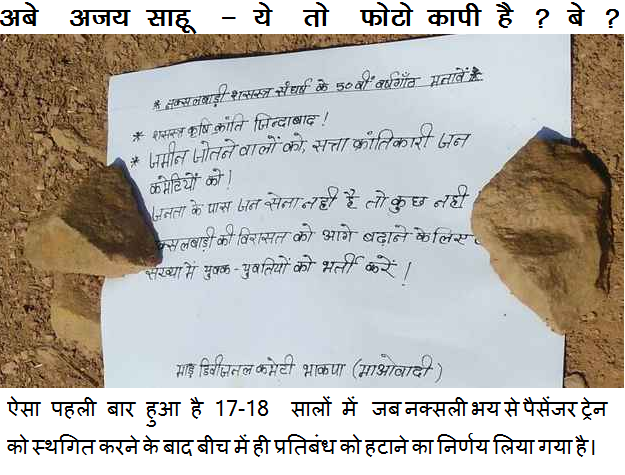 अबे अजय साहू - ये तो फोटो कापी है ? बे ?
* नक्सलबाड़ी शसस्त्र संघर्ष के 50 वीं वर्षगाँठ मनायें *
* शसस्त्र कृषि क्रांति जिन्दाबाद !
* जमीन जोतने वालों को, सत्ता क्रांतिकारी जन
कमेटियों को !
जनता के पास जन सेना नही है तो कुछ नही
क्सलबाड़ी की विरासत को आगे बढ़ाने के लिए
संख्या में युवक - युवतियों को भर्ती करें !
माड़ डिवीजनल कमेटी भाकपा (माओवादी)
ऐसा पहली बार हुआ है 17-18 सालों में जब नक्सली भय से पैसेंजर ट्रेन
को स्थगित करने के बाद बीच में ही प्रतिबंध को हटाने का निर्णय लिया गया है।